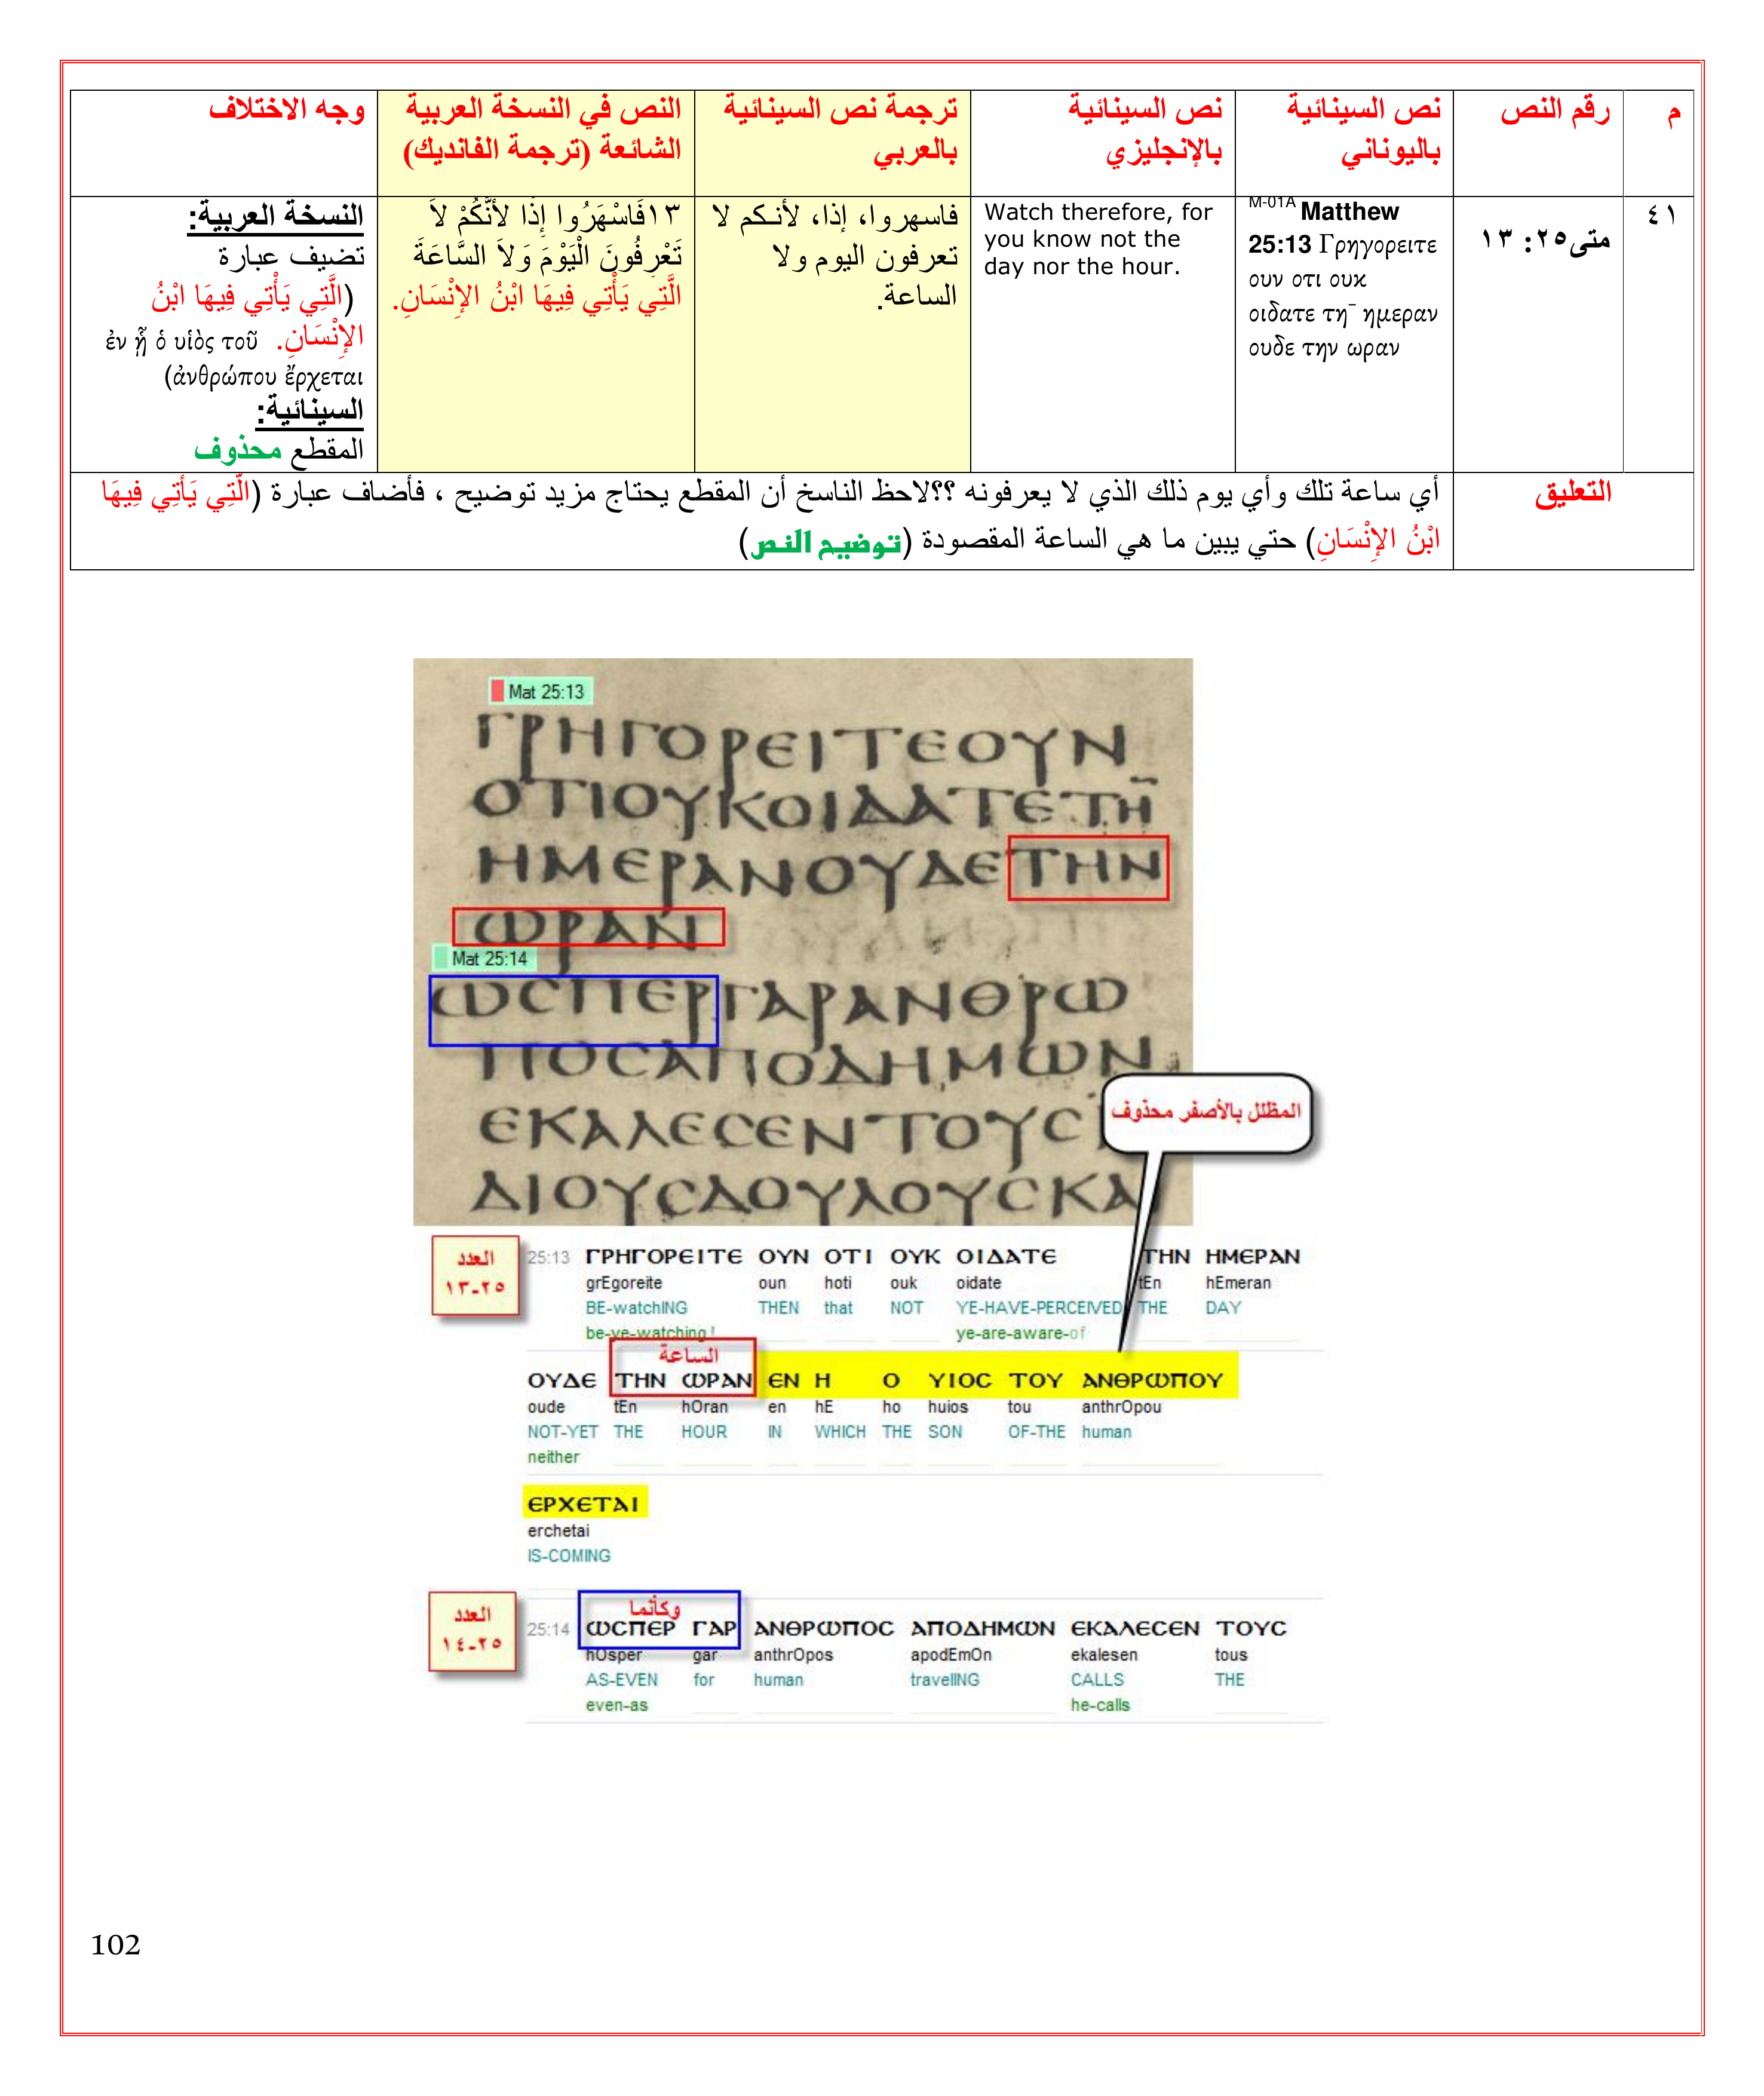 م
رقم النص
نص السينائية
باليوناني
نص السينائية
بالإنجليزي
ترجمة نص السينائية
بالعربي
النص في النسخة العربية
الشائعة (ترجمة الفانديك)
وجه الاختلاف
٤١
متى٢٥: ١٣
M-01A Matthew
25:13 Γρηγορειτε
ουν οτι ουκ
οιδατε τη¯ ημεραν
ουδε την ωραν
Watch therefore, for
you know not the
day nor the hour.
فاسهروا، إذا، لأنكم لا
تعرفون اليوم ولا
الساعة.
١٣فَاسْهَرُوا إِذًا لأَنَّكُمْ لاَ
تَعْرِفُونَ الْيَوْمَ وَلاَ السَّاعَةَ
الَّتِي يَأْتِي فِيهَا ابْنُ الإِنْسَانِ.
النسخة العربية:
تضيف عبارة
(الَّتِي يَأْتِي فِيهَا ابْنُ
الإِنْسَانِ. ἐν ᾗ ὁ υἱὸς τοῦ
ἀνθρώπου ἔρχεται)
السينائية:
المقطع محذوف
التعليق
أي ساعة تلك وأي يوم ذلك الذي لا يعرفونه ؟؟لاحظ الناسخ أن المقطع يحتاج مزيد توضيح ، فأضاف عبارة (الَّتِي يَأْتِي فِيهَا
ابْنُ الإِنْسَانِ) حتي يبين ما هي الساعة المقصودة (توضيح النص)
Mat 25:13
ΓΡΗΓΟΡΕΙΤΕΟΥΝ
ΟΤΙΟΥΚΟΙΔΑΤΕΤΗ̅
ΗΜΕΡΑΝΟΥΔΕΤΗΝ
ΩΡΑΝ
Mat 25:14
ΩϹΠΕΡΓΑΡΑΝΘΡΩ
ΠΟϹΑΠΟΔΗΜΩΝ
ΕΚΑΛΕϹΕΝΤΟΥϹ
ΔΙΟΥϹΔΟΥΛΟΥϹΚΑ
المظلل بالأصفر محذوف
العدد
٢٥-١٣
25:13 ΓΡΗΓΟΡΕΙΤΕ ΟΥΝ ΟΤΙ ΟΥΚ ΟΙΔΑΤΕ ΤΗΝ ΗΜΕΡΑΝ
grEgoreite oun hoti ouk oidate tEn hEmeran
BE-watchING THEN that NOT YE-HAVE-PERCEIVED THE DAY
be-ye-watching ! ye-are-aware-of
الساعة
ΟΥΔΕ ΤΗΝ ΩΡΑΝ ΕΝ Η Ο ΥΙΟϹ ΤΟΥ ΑΝΘΡΩΠΟΥ
oude tEn hOran en hE ho huios tou anthrOpou
NOT-YET THE HOUR IN WHICH THE SON OF-THE human
neither
ΕΡΧΕΤΑΙ
erchetai
IS-COMING
العدد
٢٥-١٤
وكأنما
25:14 ΩϹΠΕΡ ΓΑΡ ΑΝΘΡΩΠΟϹ ΑΠΟΔΗΜΩΝ ΕΚΑΛΕϹΕΝ ΤΟΥϹ
hOsper gar anthrOpos apodEmOn ekalesen tous
AS-EVEN for human travelING CALLS THE
even-as he-calls
102